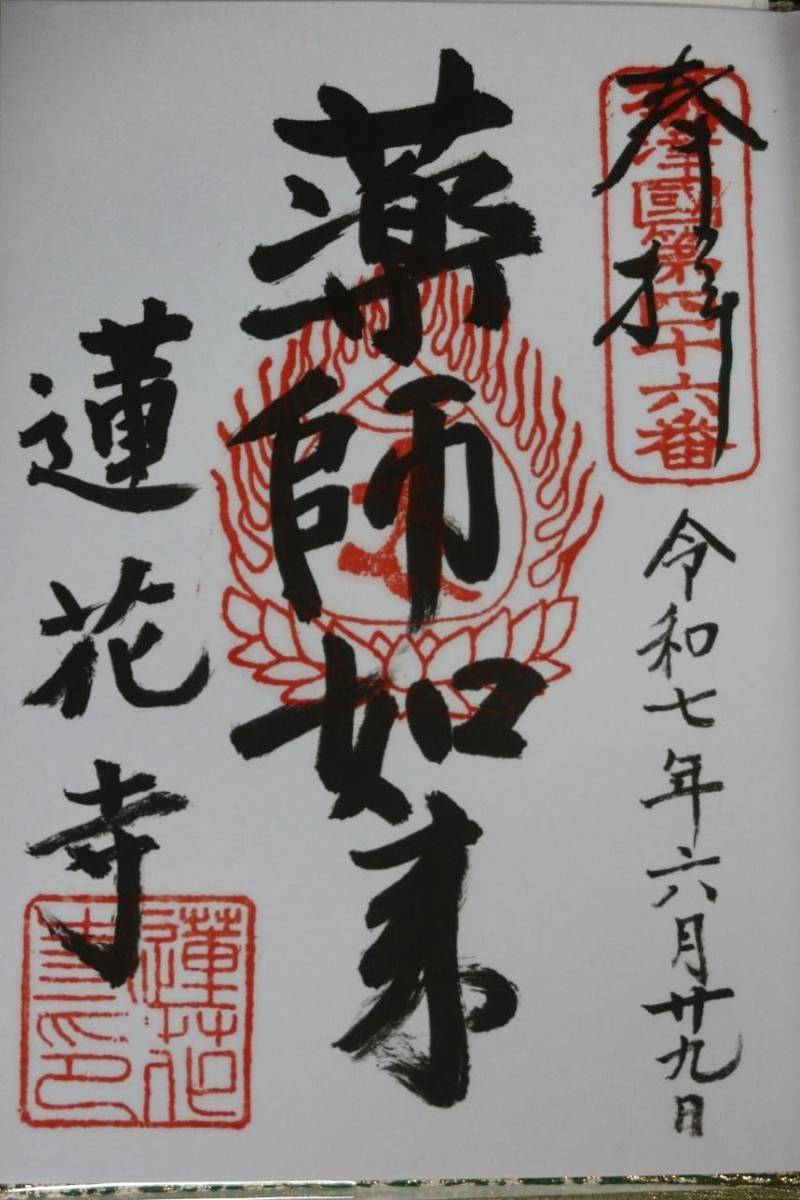 奉拝
摂津國第四十六番
令和七年六月廿九日
薬師如来
蓮花寺
蓮花
寺印